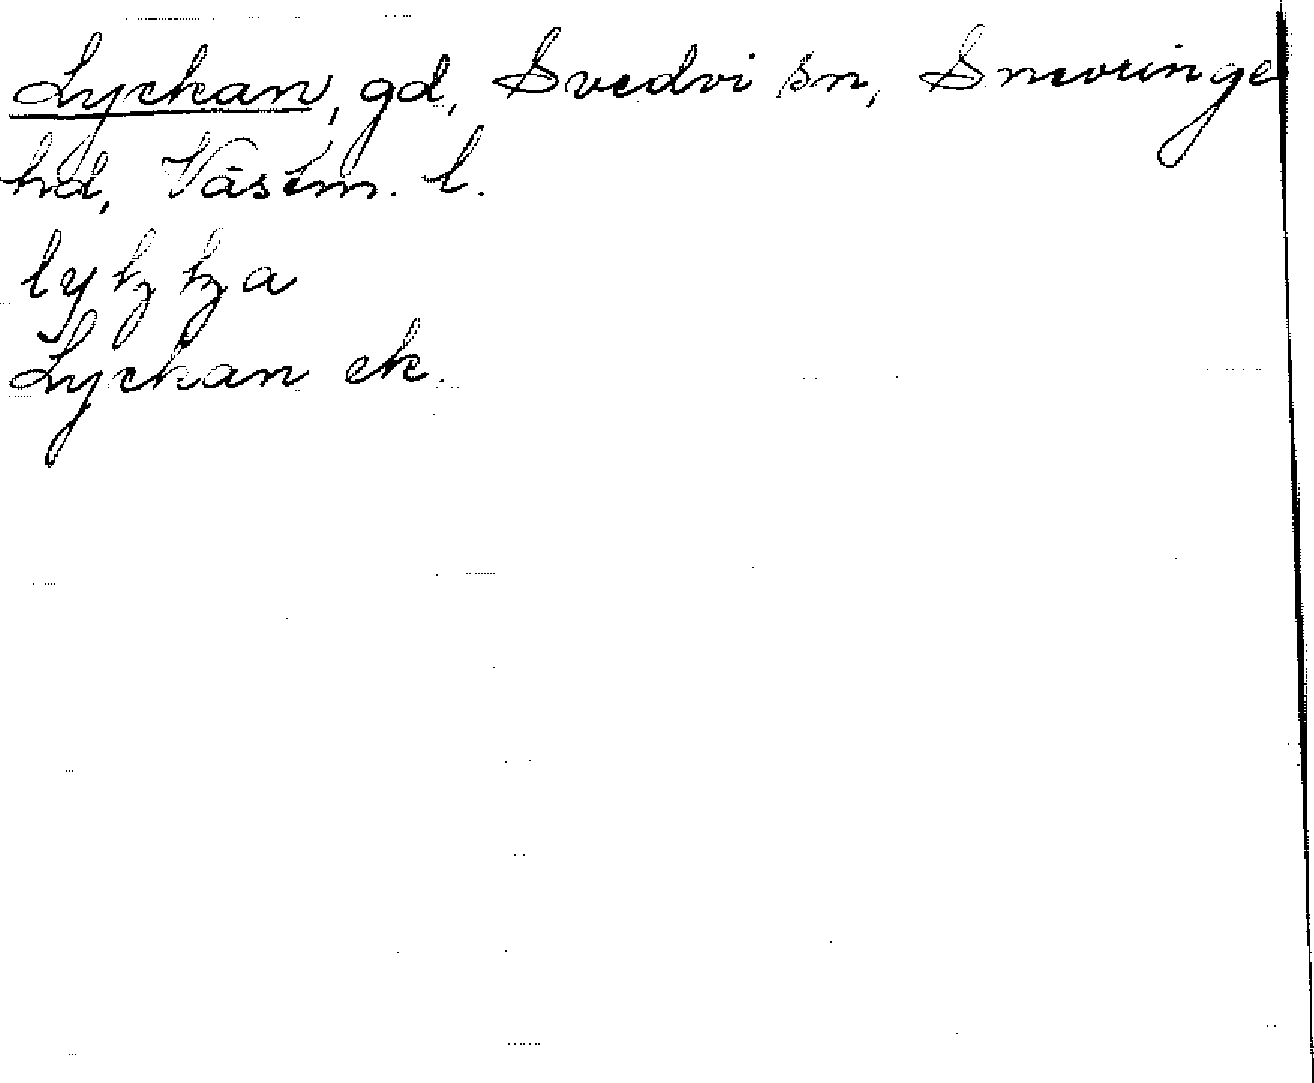 Lyckan, gd, Svedvi sn, Snevringe
hd, Västm. l.
Lyckan ek.